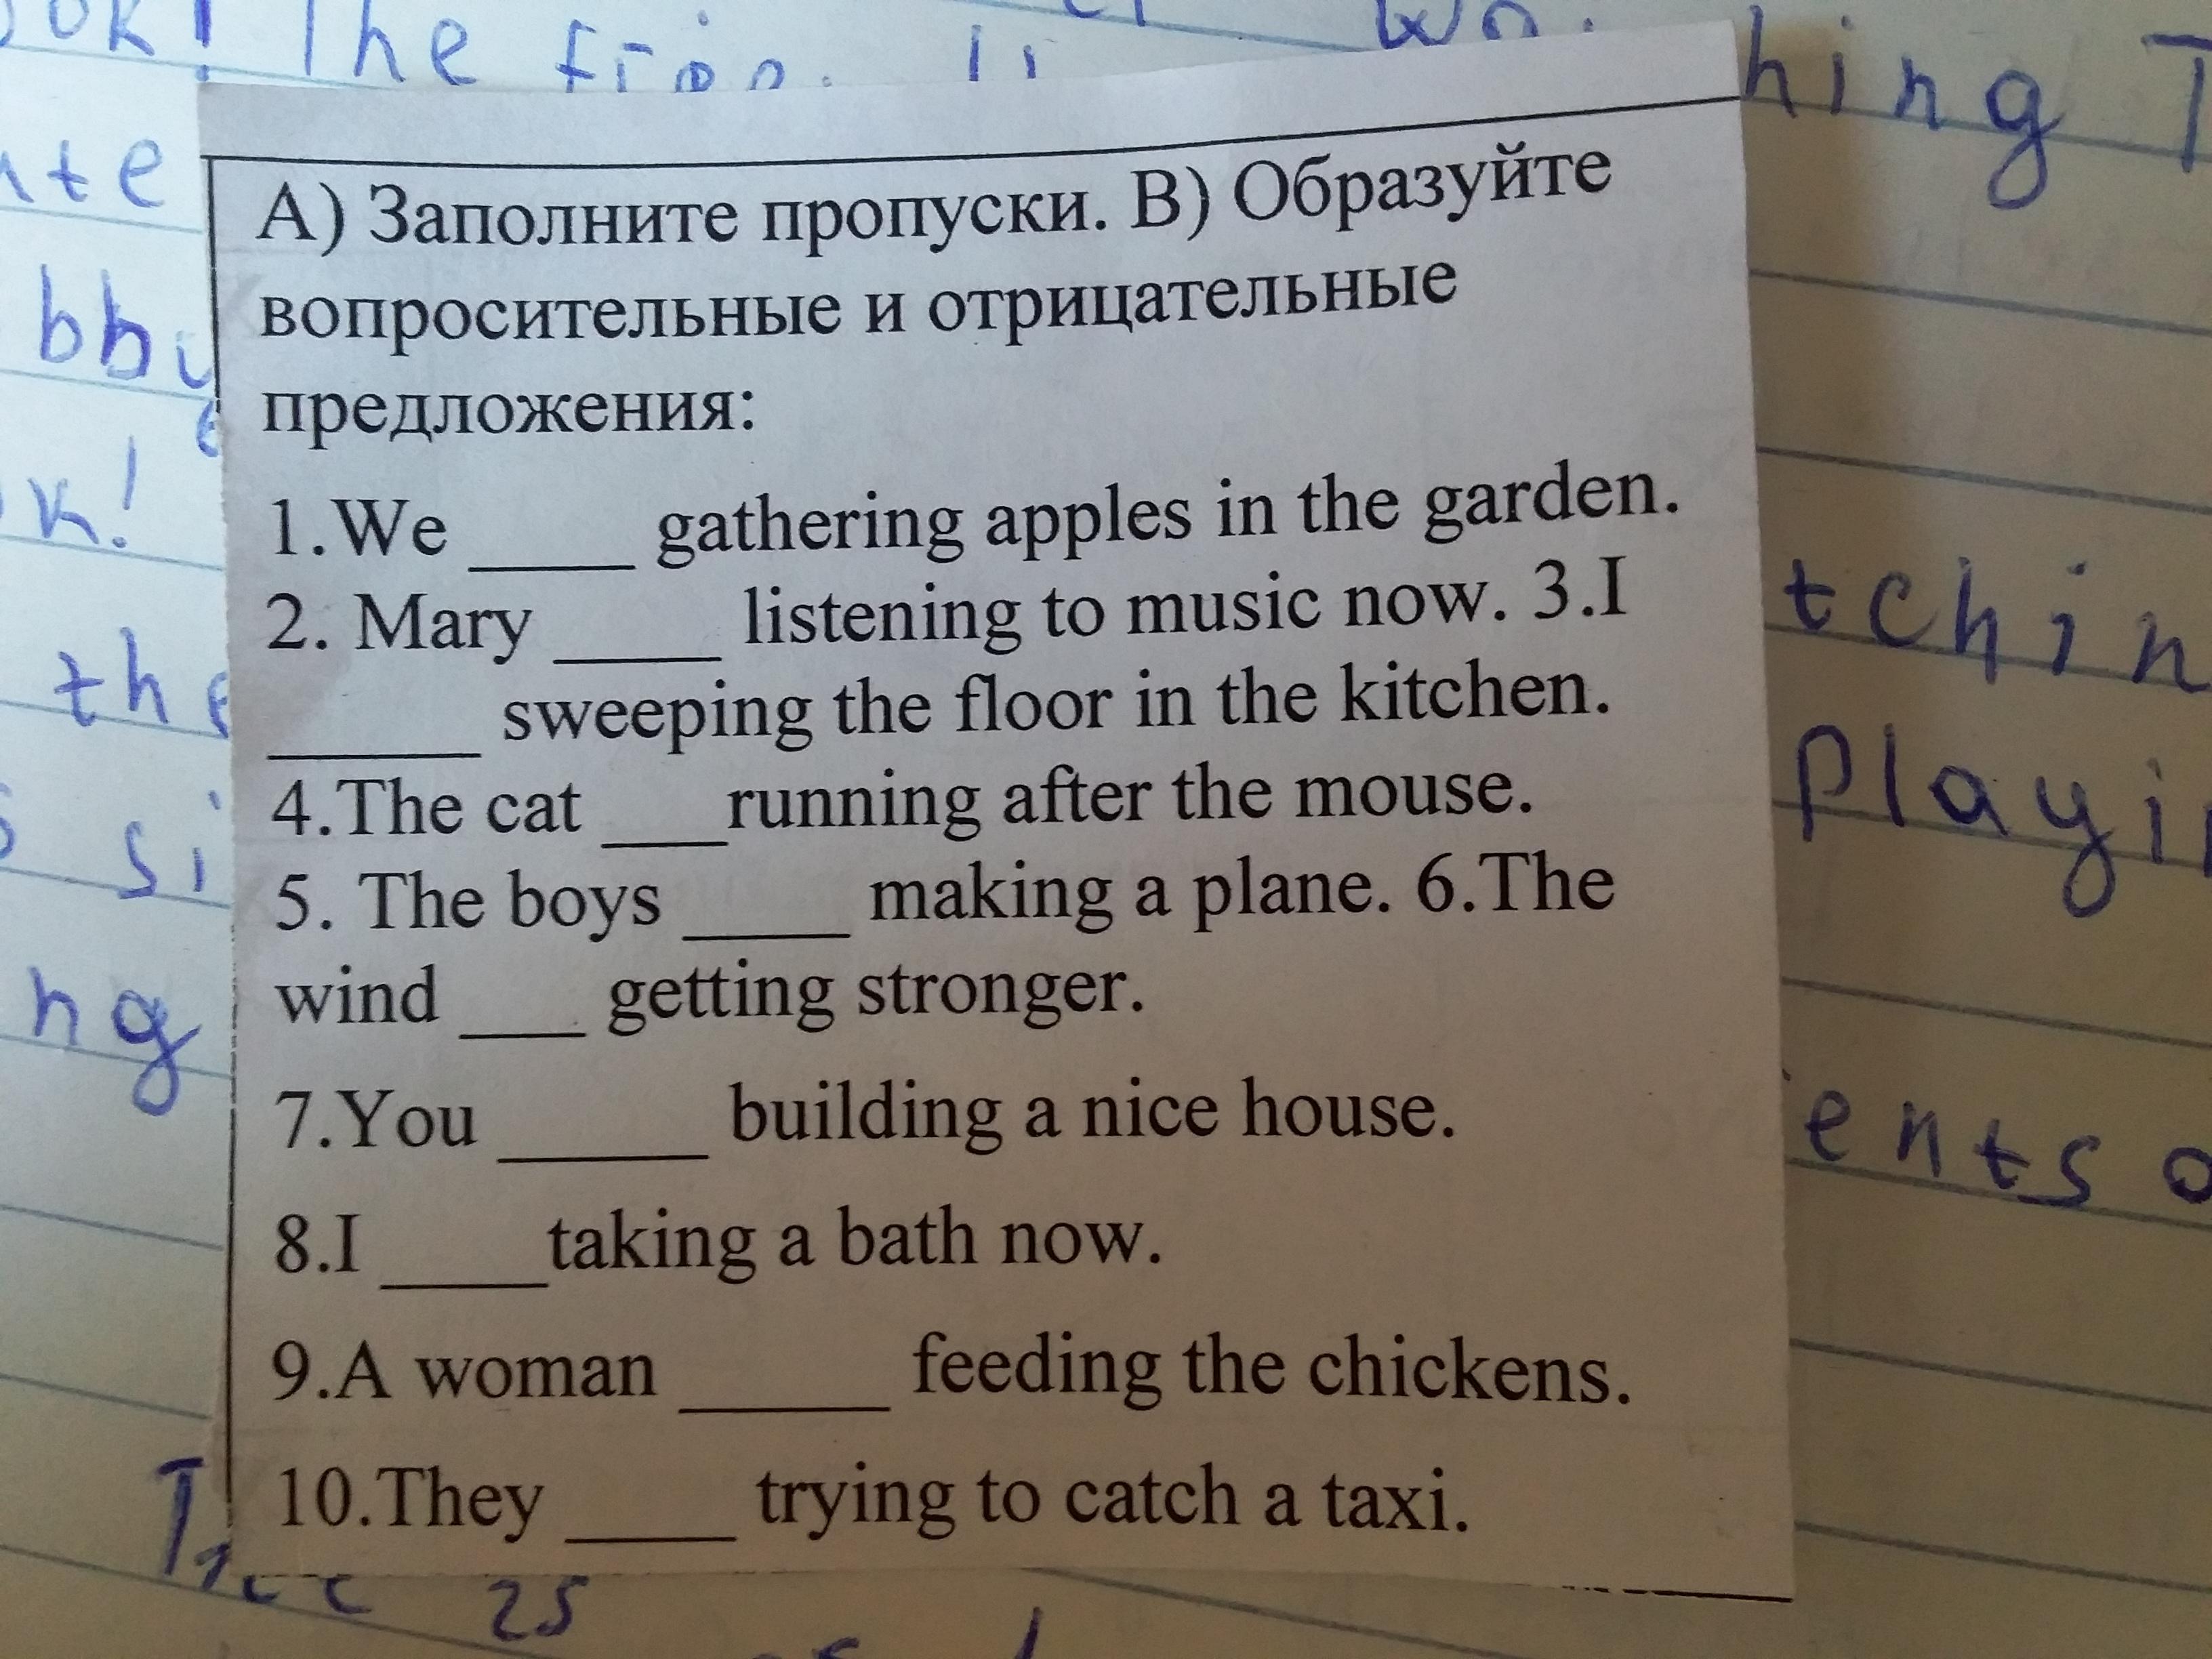 ok! The
hing T
nte
А) Заполните пропуски. В) Образуйте
вопросительные и отрицательные
предложения:
1.We ____ gathering apples in the garden.
2. Mary ____ listening to music now. 3.I
_____ sweeping the floor in the kitchen.
4.The cat ___running after the mouse.
5. The boys ____ making a plane. 6.The
wind ___ getting stronger.
7.You _____ building a nice house.
8.I ____taking a bath now.
9.A woman _____ feeding the chickens.
10.They ____ trying to catch a taxi.
k!
the
si
ng
tchin
Playi
ents o